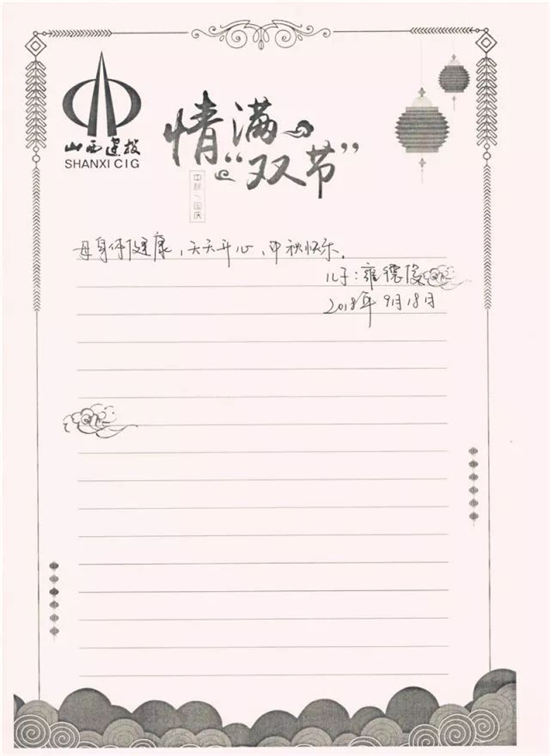 山西建投
SHANXI CIG
情满
“双节”
中秋/国庆
母身体健康，天天开心，中秋快乐.
儿子：雍德俊
2018年9月18日